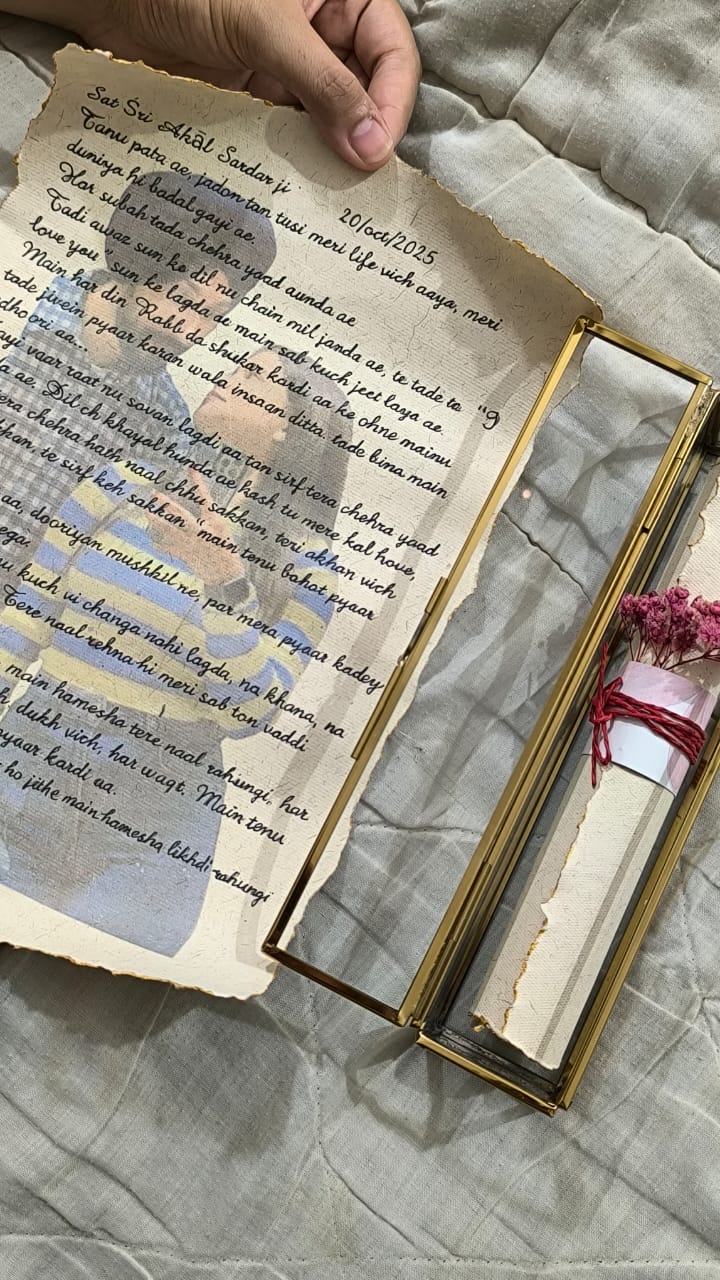 Sat Śri Akāl Sardar ji
20/oct/2025
Tanu pata ae, jadon tan tusi meri life vich aaya, meri
duniya hi badal gayi ae.
Har subah tada chehra yaad aunda ae
Tadi awaz sun ke dil nu chain mil janda ae, te tade to "9
love you" sun ke lagda ae main sab kuch jeet laya ae.
Main har din Rabb da shukar kardi aa ke ohne mainu
tade jivein pyaar karan wala insaan ditta. tade bina main
dhoori aa...
vaar raat nu sovan lagdi aa tan sirf tera chehra yaad
ae. Dil ch khayal hunda ae kash tu mere kal hove,
tera chehra hath naal chhu sakkan, teri akhan vich
te sirf keh sakkan "main tenu bahot pyaar
aa, dooriyan mushkil ne, par mera pyaar kadey
kuch vi changa nahi lagda, na khana, na
Tere naal rehna hi meri sab ton vaddi
main hamesha tere naal rahungi, har
dukh vich, har waqt. Main tenu
pyaar kardi aa.
ho jithe main hamesha likhdi rahungi